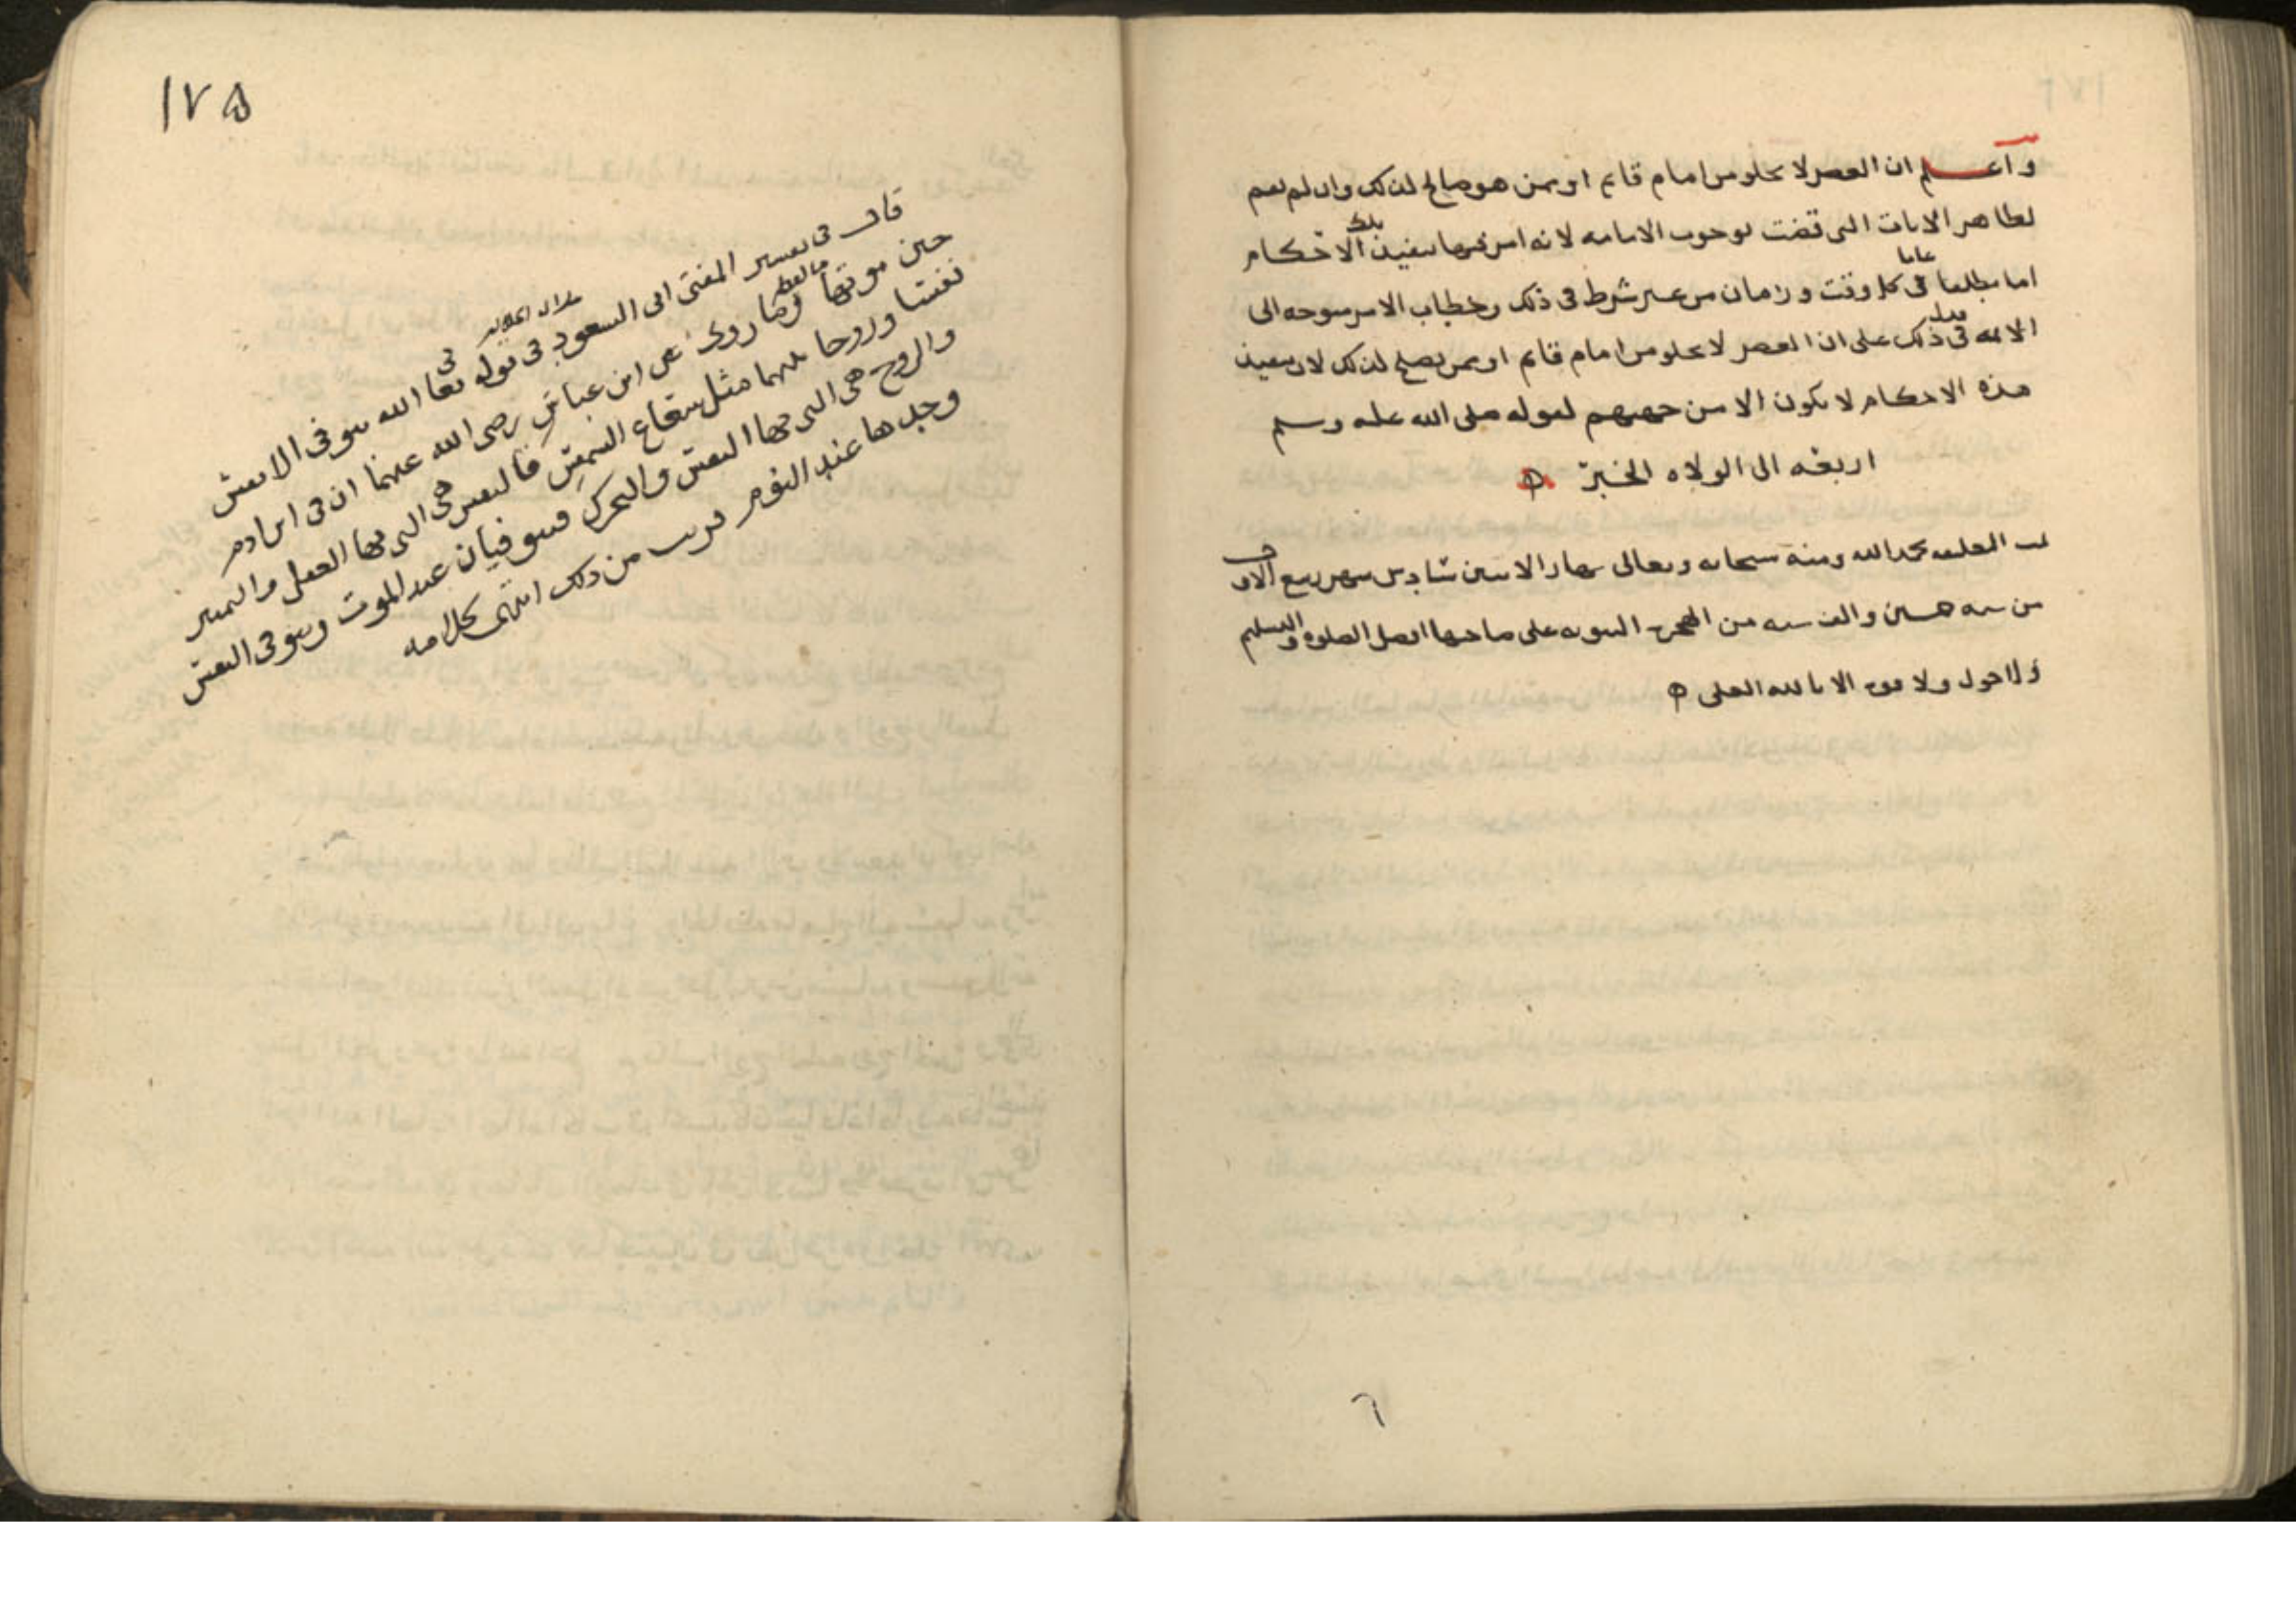 واعلم ان العصر لا يخلو من امام قايم او ممن هو صالح لذلك وان لم يقم
لظاهر الايات التي قضت بوجوب الامامه لانه امر فيها بتنفيذ تلك الاحكام
امرا مطلقا عاما في كل وقت وزمان من غير شرط في ذلك وخطاب الامر متوجه الى
الائمه في ذلك فدل على ان العصر لا يخلو من امام قايم او ممن يصلح لذلك لان تنفيذ
هذه الاحكام لا يكون الا من جهتهم لقوله صلى الله عليه وسلم
اربعه الى الولاه الخبر
تمت المعلقه بحمد الله ومنه سبحانه وتعالى نهار الاثنين سادس شهر ربيع الاول
من سنه والف سنه من الهجره النبويه على صاحبها افضل الصلوه والتسليم
ولا حول ولا قوه الا بالله العلي
٦
١٧٥
قال في تفسير المفتي ابي السعود في قوله تعالى الله يتوفى الانفس
حين موتها ما لفظه وما روي عن ابن عباس رضي الله عنهما ان في ابن ادم
نفسا وروحا بينهما مثل شعاع الشمس فالنفس هي التي بها العقل والتمييز
والروح هي التي بها النفس والتحرك فيتوفيان عند الموت ويتوفى النفس
وحدها عند النوم قريب من ذلك انتهى كلامه